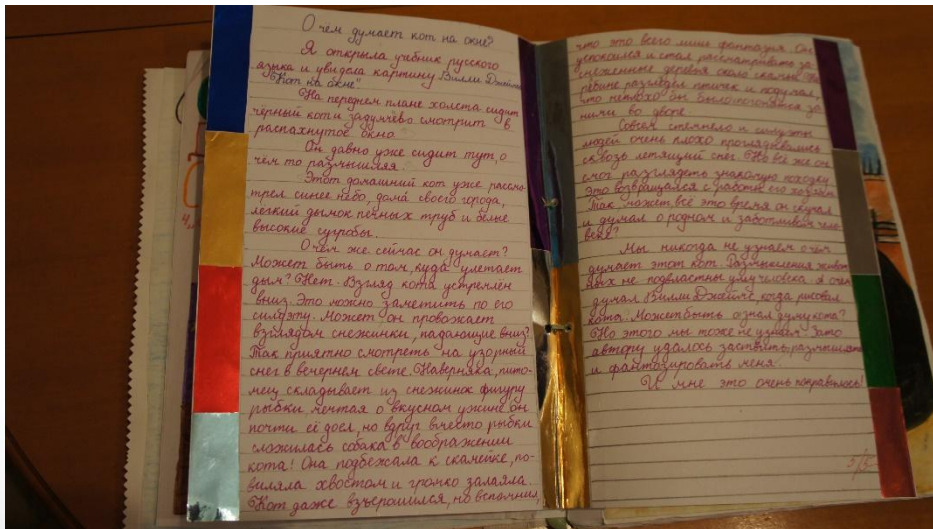 О чём думает кот на окне?
Я открыла учебник русского
языка и увидела картину Вилли Джеймса
"Кот на окне"
На переднем плане холста сидит
чёрный кот и задумчево смотрит в
распахнутое окно.
Он давно уже сидит тут, о
чём то размышляя.
Этот домашний кот уже рассмо-
трел синее небо, дома своего города,
лёгкий дымок печных труб и белые
высокие сугробы.
О чём же сейчас он думает?
Может быть о том, куда улетает
дым? Нет. Взгляд кота устремлён
вниз. Это можно заметить по его
силуэту. Может он провожает
взглядом снежинки, падающие вниз?
Так приятно смотреть на узорный
снег в вечернем свете. Наверняка, пито-
мец складывает из снежинок фигуру
рыбки, мечтая о вкусном ужине он
почти её доел, но вдруг вместо рыбки
сложилась собака в воображении
кота! Она подбежала к скамейке, по-
виляла хвостом и громко залаяла.
Кот даже взъерошился, но вспомнил,
что это всего лишь фантазия. Он
успокоился и стал рассматривать за-
снеженные деревья около скамьи. На
рябине разглядел птичек и подумал,
что неплохо он было погонятся за
ними во дворе.
Совсем стемнело и силуэты
людей очень плохо проглядывались
сквозь летящий снег. Но всё же он
смог разглядеть знакомую походку.
Это возвращался с работы его хозяин.
Так может всё это время он скучал
и думал о родном и заботливом чело-
веке?
Мы никогда не узнаем о чём
думает этот кот. Размышления живот-
ных не подвластны уму человека. А о чём
думал Вилли Джеймс, когда рисовал
кота. Может быть он знал думу кота?
Но этого мы тоже не узнаем. Зато
автору удалось заставить размышлять
и фантазировать меня.
И мне это очень понравилось!